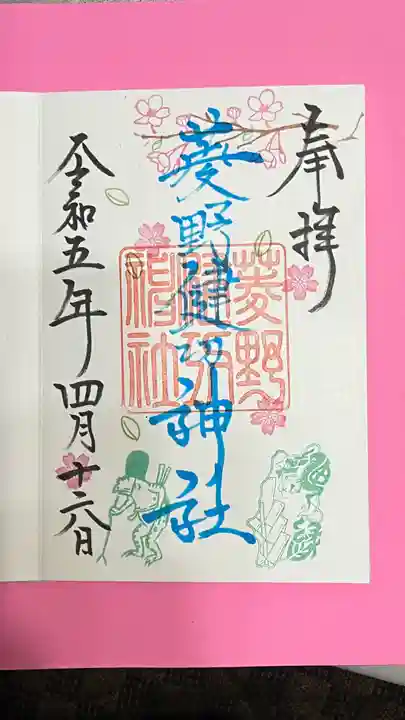 奉拝
菱野健功神社
菱野
健功
神社
令和五年四月十六日